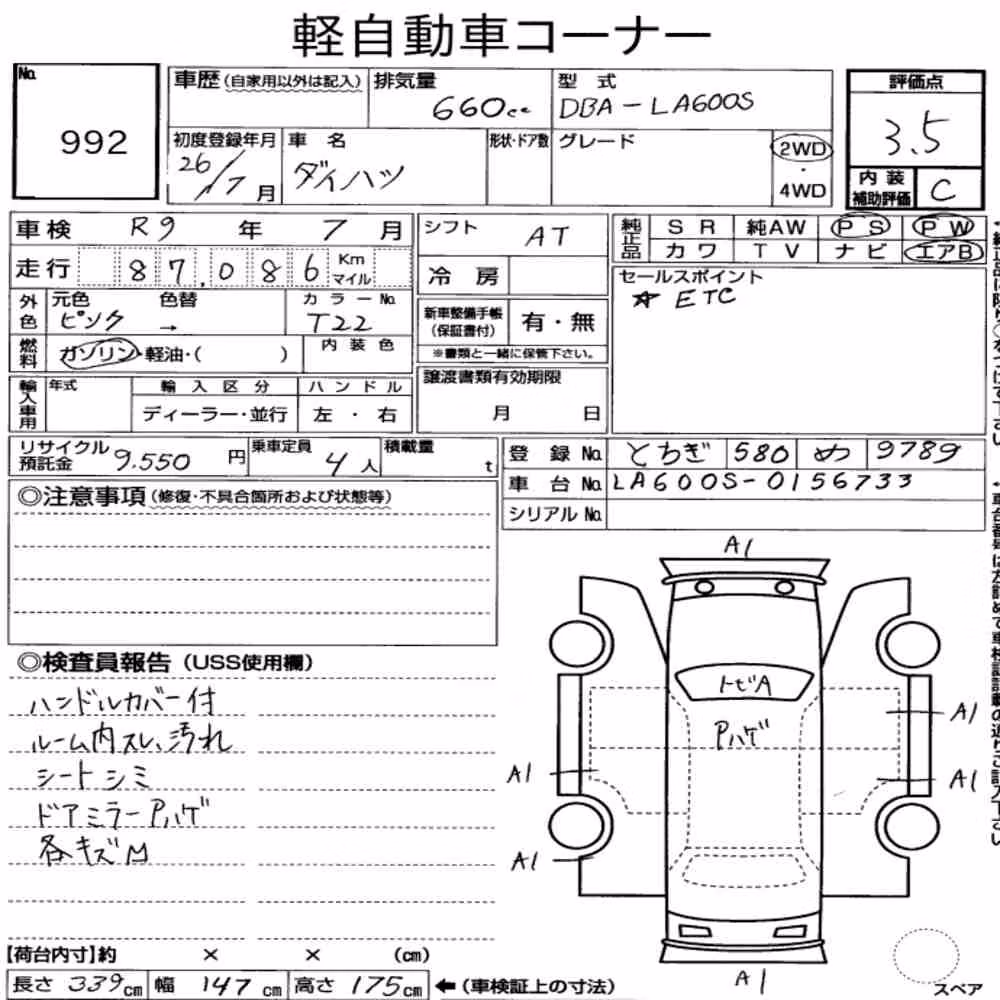 軽自動車コーナー
No. 992
車歴(自家用以外は記入) 排気量 660cc 型式 DBA-LA600S 評価点 3.5
初度登録年月 26/7月 車名 ダイハツ 形状・ドア数 グレード 2WD・4WD 内装補助評価 C
車検 R9年7月 シフト AT 純正品 SR 純AW PS PW
走行 87,086 Km マイル 冷房 カワ TV ナビ エアB
外色 元色 ピンク 色替 → カラーNo. T22 新車整備手帳(保証書付) 有・無 セールスポイント
☆ETC
※書類と一緒に保管下さい。
燃料 ガソリン・軽油・( ) 内装色
輸入車用 年式 輸入区分 ハンドル 譲渡書類有効期限
ディーラー・並行 左・右 月 日
リサイクル預託金 9.550円 乗車定員 4人 積載量 t 登録No. とちぎ 580 め 9789
車台No. LA600S-0156733
シリアルNo.
◎注意事項(修復・不具合箇所および状態等)
◎検査員報告(USS使用欄)
ハンドルカバー付
ルーム内スレ、汚れ
シートシミ
ドアミラーPハゲ
各キズM
A1
トビA
Pハゲ
A1
A1
A1
A1
A1
スペア
【荷台内寸】約 × × (cm)
長さ 339cm 幅 147cm 高さ 175cm ←(車検証上の寸法)